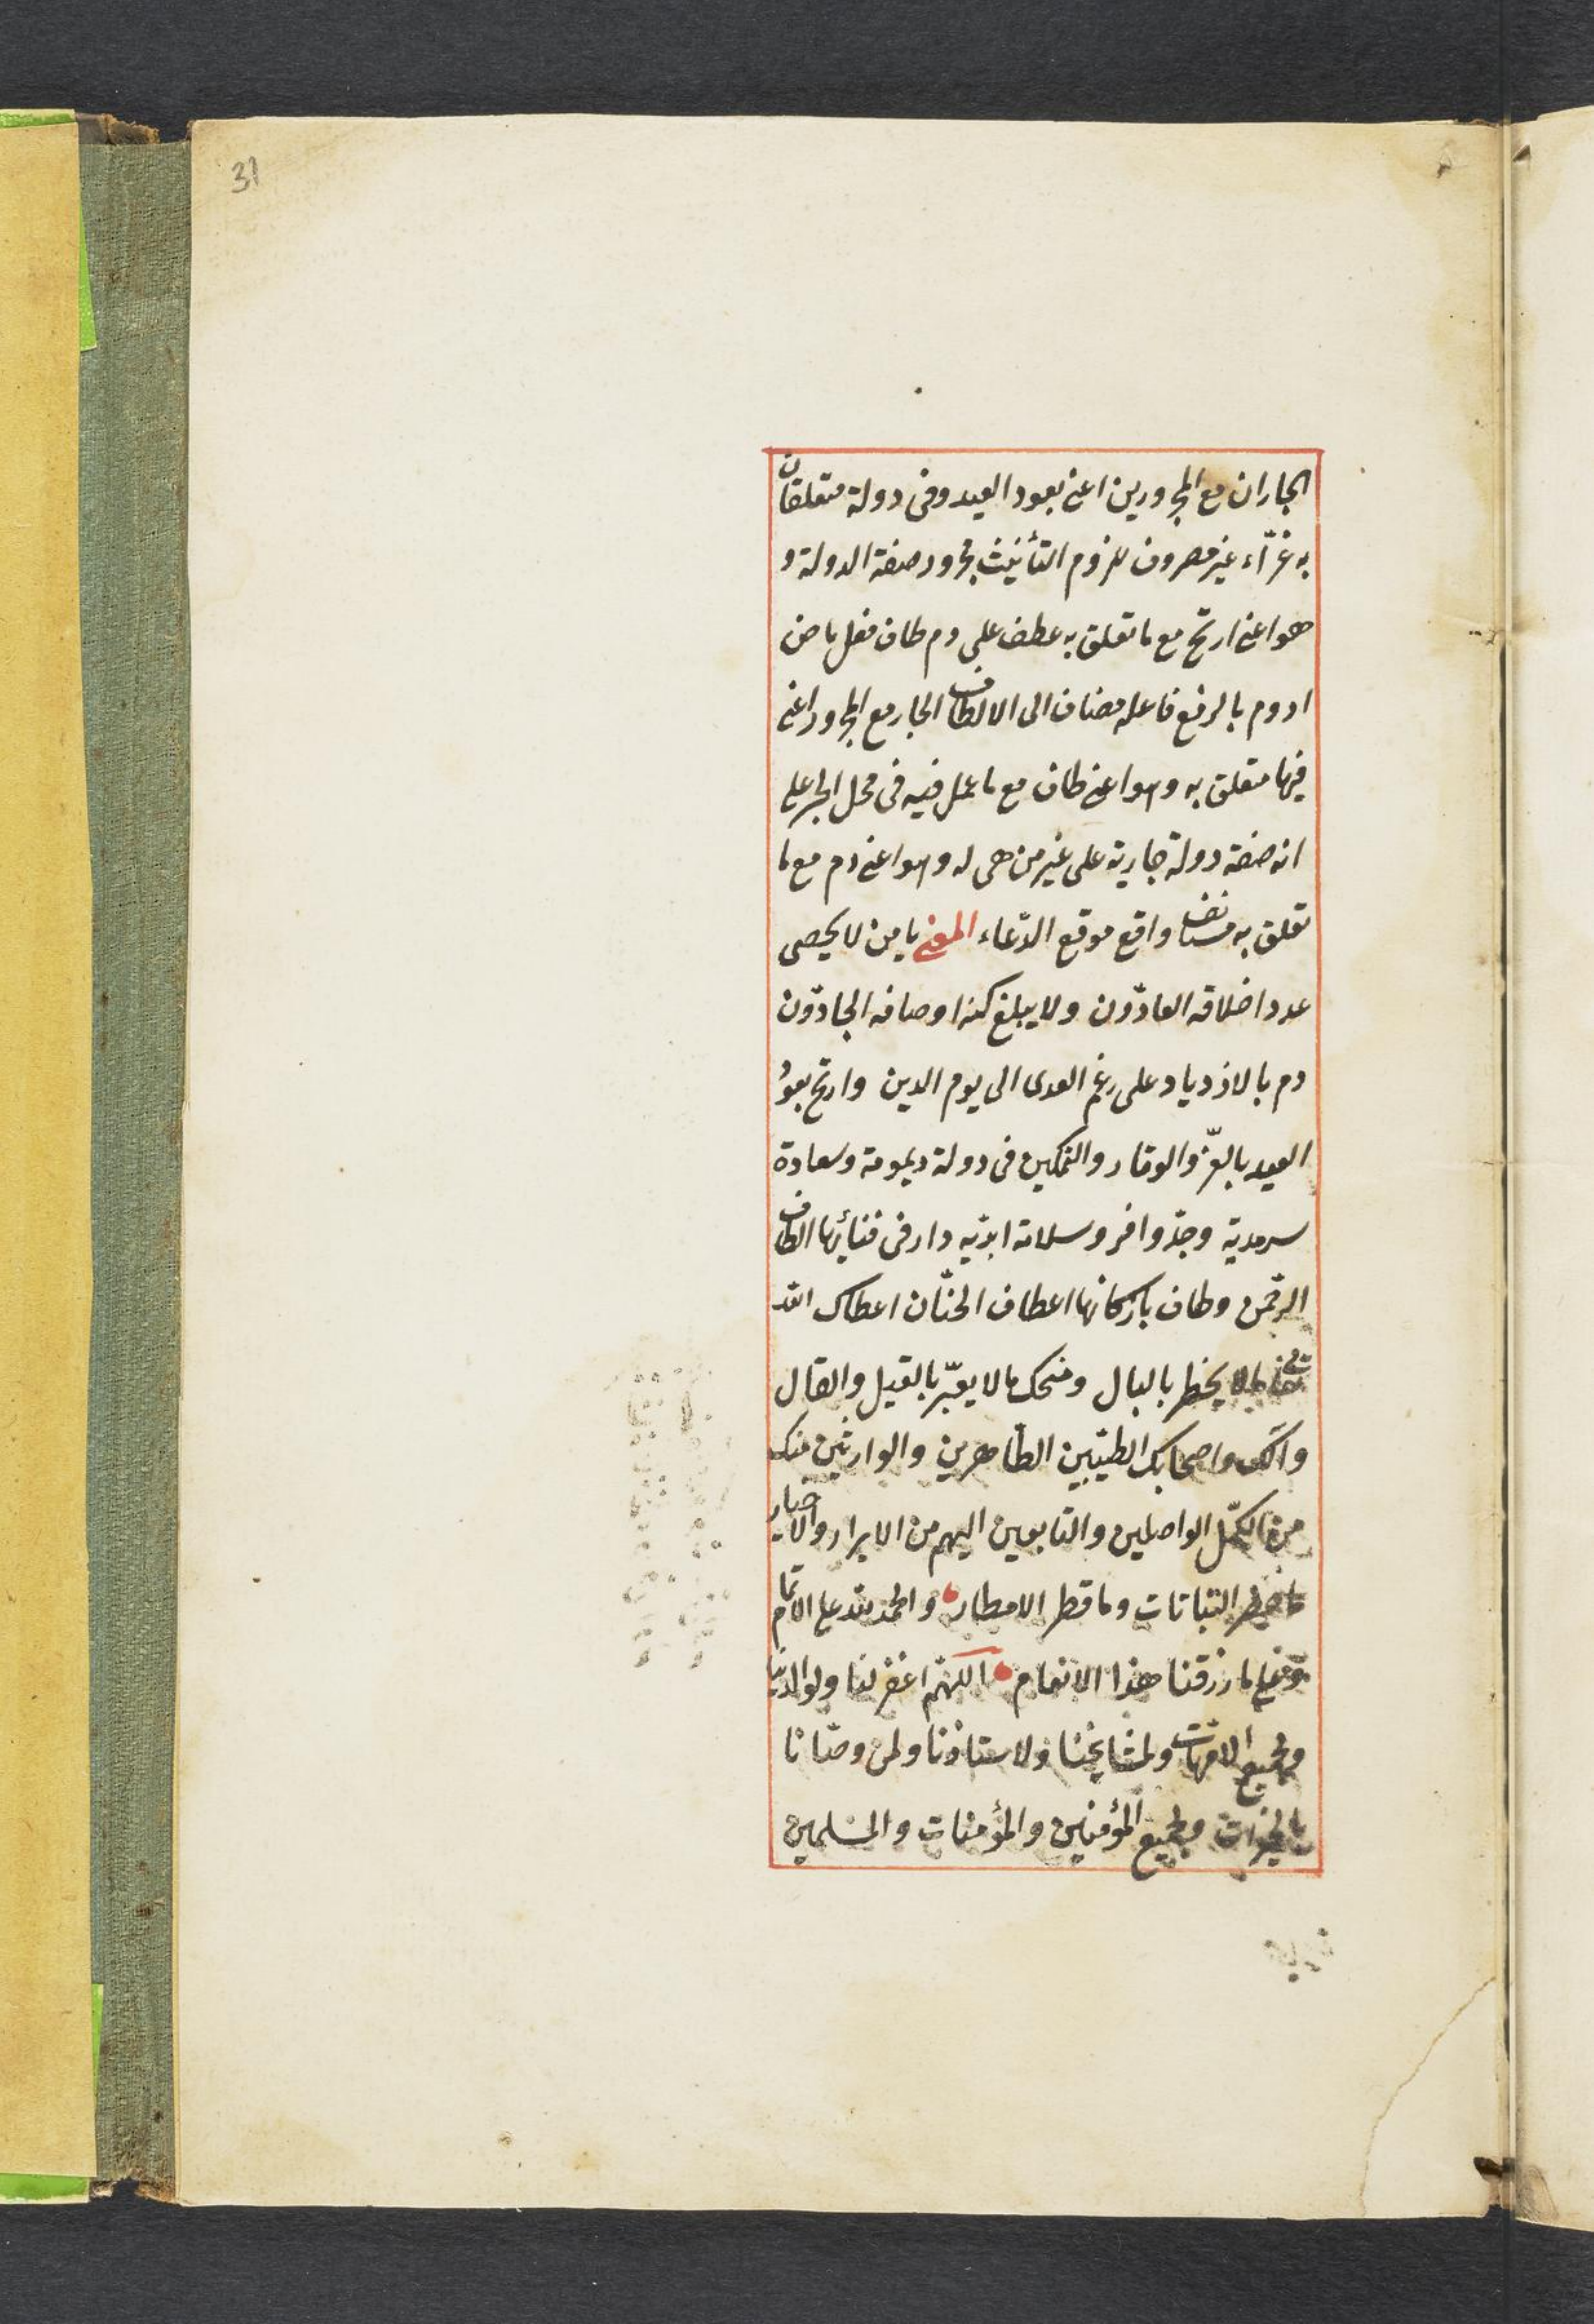 31
الجاران مع المجرورين اعنى بعود العيد وفى دولة متعلقان
به غرّاء غير مصروف للزوم التأنيث مجرور صفة الدولة و
هو اعنى ارتح مع ما تعلق به عطف على دم طاف فعل ماض
ادوم بالرفع فاعله مضاف الى الالطاف الجار مع المجرور اعنى
فيها متعلق به وهو اعنى طاف مع ما عمل فيه فى محل الجر على
انه صفة دولة جارية على غير من هى له وهو اعنى دم مع ما
تعلق به مستأنف واقع موقع الدّعاء المعنى يا من لا يحصى
عدد اخلاقه العادّون ولا يبلغ كنه اوصافه الجادّون
دم بالازدياد على رغم العدى الى يوم الدين وارتح بعود
العيد بالعزّ والوقار والتمكين فى دولة ديمومة وسعادة
سرمدية وجدّ وافر وسلامة ابديّه دار فى فنائها الطاف
الرحمن وطاف باركانها اعطاف الحنّان اعطاك الله
ما لا يخطر بالبال ومنحك ما لا يعبّر بالقيل والقال
وآلك واصحابك الطيّبين الطّاهرين والوارثين منك
من الكمّل الواصلين والتابعين اليهم من الابرار والاخيار
النباتات وما قطر الامطار والحمد لله على الاتمام
وعلى ما رزقنا هذا الانعام اللّهمّ اغفر لنا ولوالدينا
ولجميع الامّهات ولمشايخنا ولاستاذنا ولمن وصّانا
بالخيرات ولجميع المؤمنين والمؤمنات والمسلمين